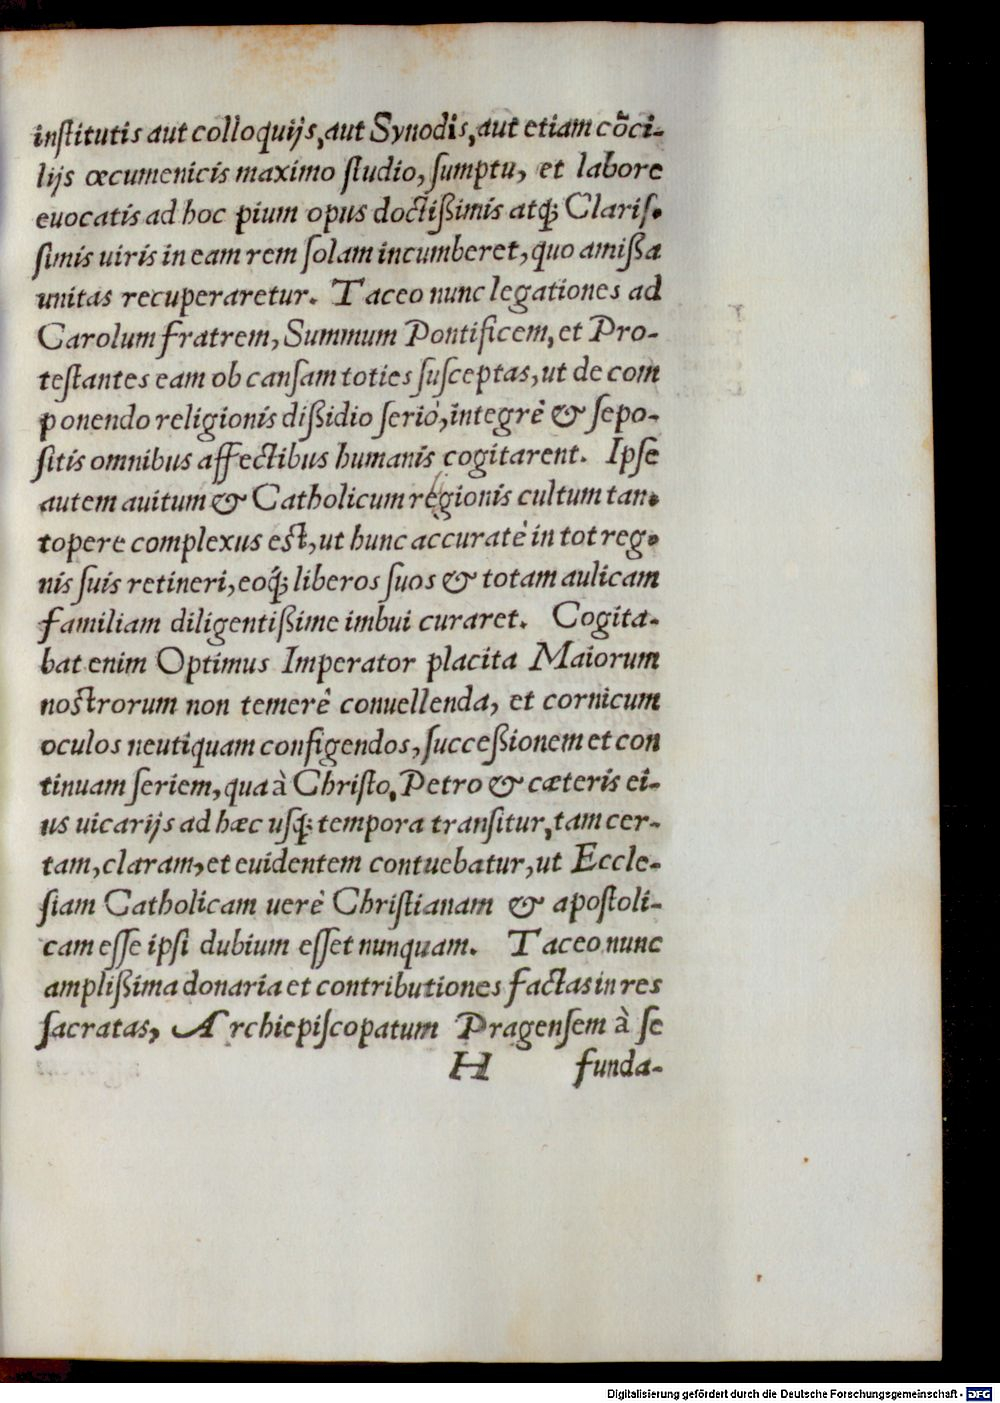 inſtitutis aut colloquijs, aut Synodis, aut etiam cõci-
lijs œcumenicis maximo ſtudio, ſumptu, et labore
euocatis ad hoc pium opus doctißimis atq́; Clariſ-
ſimis uiris in eam rem ſolam incumberet, quo amißa
unitas recuperaretur. Taceo nunc legationes ad
Carolum fratrem, Summum Pontificem, et Pro-
teſtantes eam ob cauſam toties ſuſceptas, ut de com
ponendo religionis dißidio ſeriò, integrè & ſepo-
ſitis omnibus affectibus humanis cogitarent. Ipſe
autem auitum & Catholicum regionis cultum tan-
topere complexus eſt, ut hunc accuratè in tot reg-
nis ſuis retineri, eoq́; liberos ſuos & totam aulicam
familiam diligentißime imbui curaret. Cogita-
bat enim Optimus Imperator placita Maiorum
noſtrorum non temerè conuellenda, et cornicum
oculos neutiquam configendos, ſucceßionem et con
tinuam ſeriem, qua à Chriſto, Petro & cæteris ei-
us uicarijs ad hæc uſq́; tempora tranſitur, tam cer-
tam, claram, et euidentem contuebatur, ut Eccle-
ſiam Catholicam uerè Chriſtianam & apoſtoli-
cam eſſe ipſi dubium eſſet nunquam. Taceo nunc
amplißima donaria et contributiones factas in res
ſacratas, Archiepiſcopatum Pragenſem à ſe
H funda-
Digitalisierung gefördert durch die Deutsche Forschungsgemeinschaft - DFG